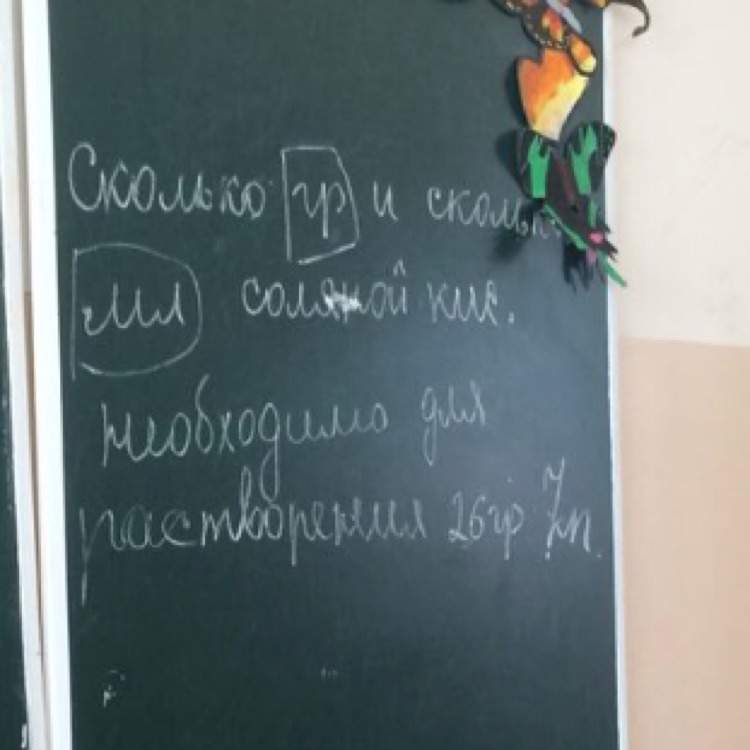 Сколько гр и сколько
мл соляной кис.
необходимо для
растворения 26гр Zn.